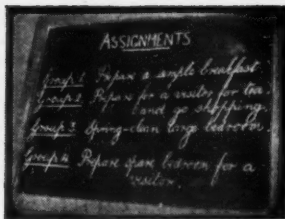 ASSIGNMENTS
Group 1. Prepare a simple breakfast.
Group 2. Prepare for a visitor for tea
and go shopping.
Group 3. Spring-clean large bedroom.
Group 4. Prepare spare bedroom for a
visitor.